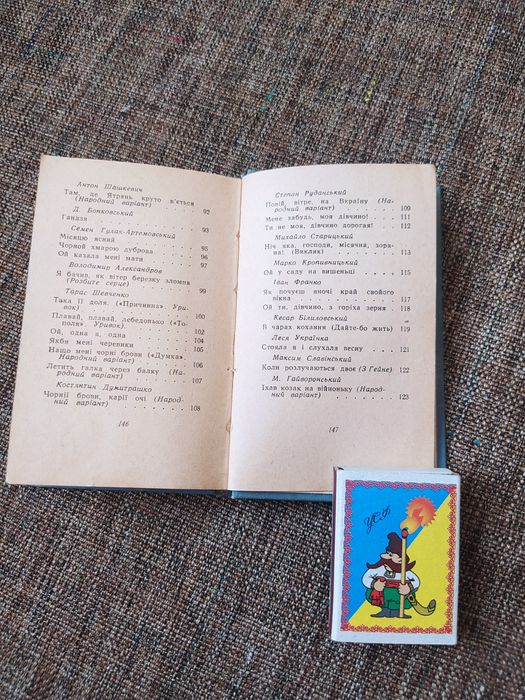 Антон Шашкевич
Там, де Ятрань круто в'ється
(Народний варіант) . . . 92
Д. Бонковський
Гандзя . . . . . . . . 93
Семен Гулак-Артемовський
Місяцю ясний . . . . . 95
Чорной хмарою дуброва . . 96
Ой казала мені мати . . . 97
Володимир Александров
Я бачив, як вітер березку зломив
(Розбите серце) . . . . 99
Тарас Шевченко
Така її доля. («Причинна» Ури-
вок) . . . . . . . . 100
Плавай, плавай, лебедонько («То-
поля». Уривок) . . . . 102
Ой, одна я, одна . . . . 104
Якби мені черевики . . . 105
Нащо мені чорні брови («Думка».
Народний варіант) . . . 106
Летить галка через балку (На-
родний варіант) . . . . 107
Костянтин Думитрашко
Чорнії брови, карії очі (Народ-
ний варіант) . . . . . 108
146
Степан Руданський
Повій, вітре, на Вкраїну (На-
родний варіант) . . . . 109
Мене забудь, моя дівчино! . . 111
Ти не моя, дівчино дорогая! . 112
Михайло Старицький
Ніч яка, господи, місячна, зоря-
на! (Виклик) . . . . . 113
Марко Кропивницький
Ой у саду на вишеньці . . 115
Іван Франко
Як почуєш вночі край свойого
вікна . . . . . . . . 117
Ой ти, дівчино, з горіха зерня . 118
Кесар Білиловський
В чарах кохання (Дайте-бо жить) 119
Леся Українка
Стояла я і слухала весну . . 121
Максим Славінський
Коли розлучаються двоє (З Гейне) 122
М. Гайворонський
Їхав козак на війноньку (Народ-
ний варіант) . . . . . 123
147